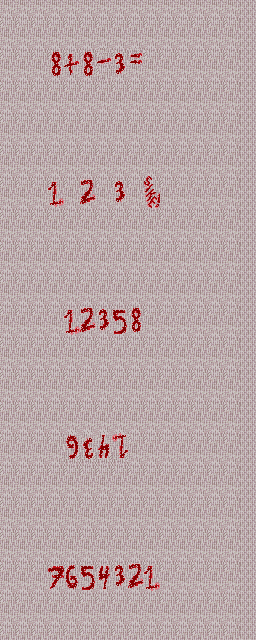 8+8-3=
1 2 3
12358
1436
7654321